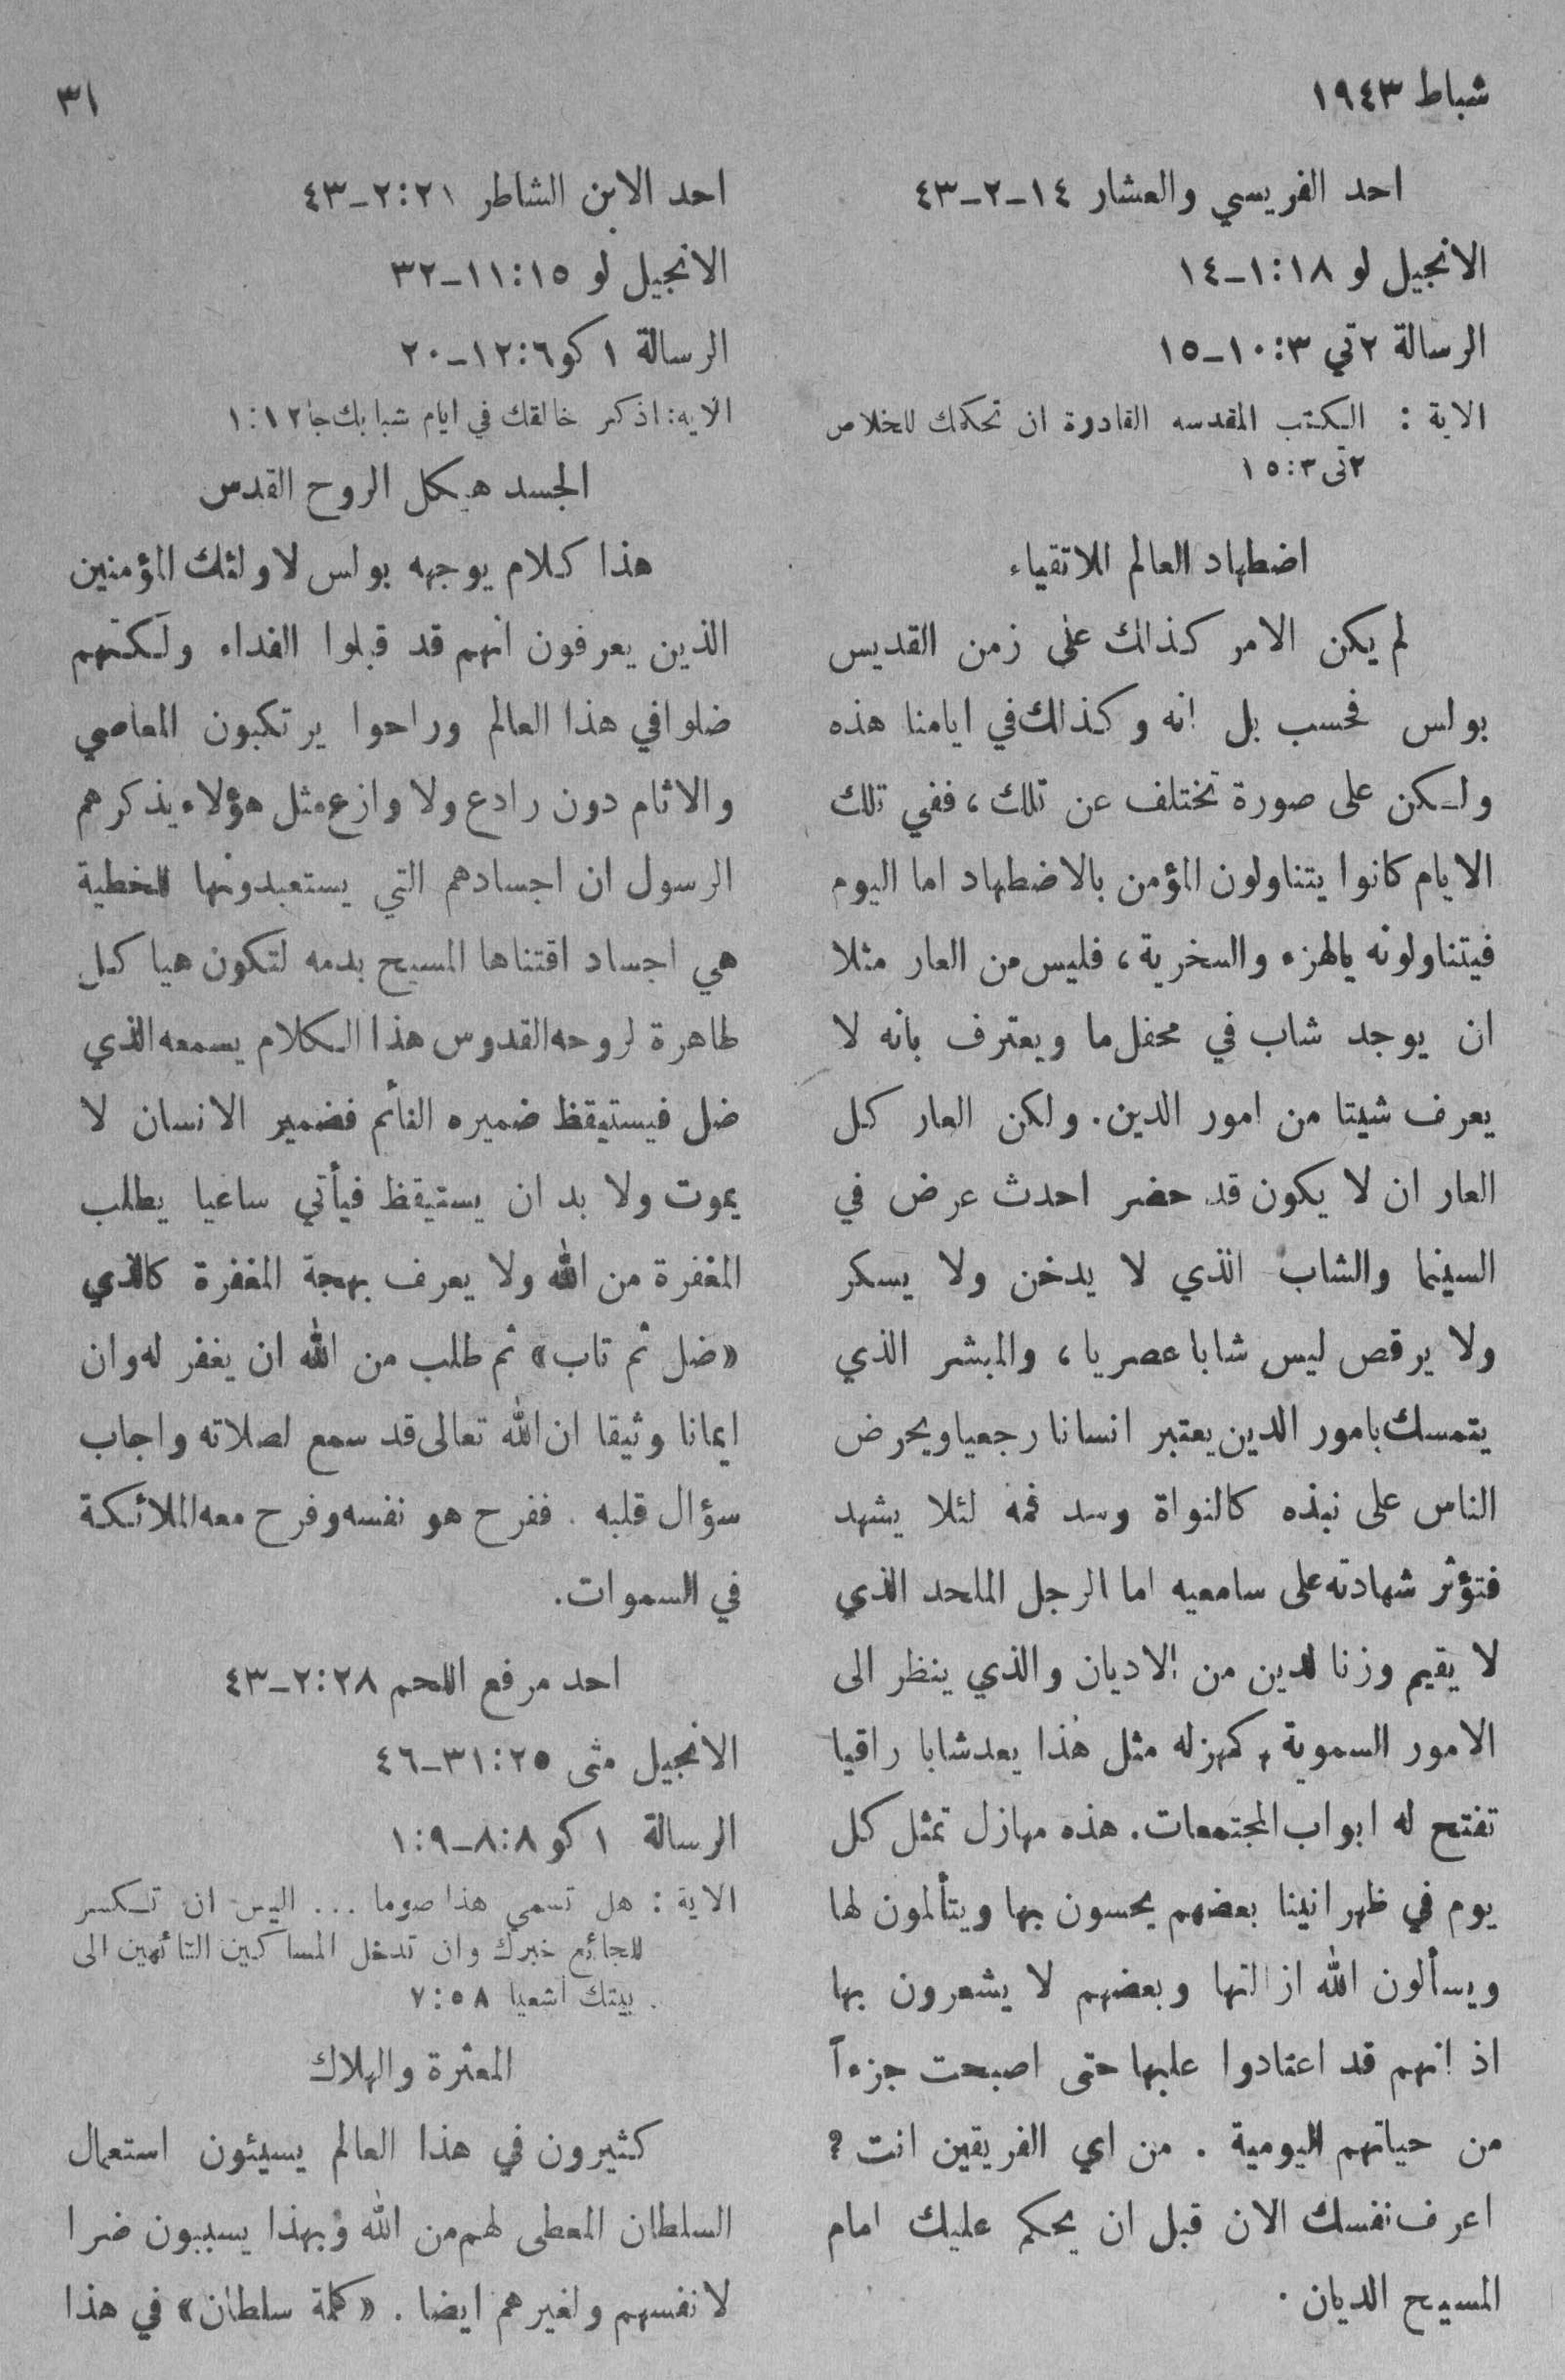 شباط ١٩٤٣
٣١
احد الفريسي والعشار ١٤-٢-٤٣
الانجيل لو ١:١٨-١٤
الرسالة ٢تي ١٠:٣-١٥
الاية : الكتب المقدسه القادرة ان تحكمك للخلاص
٢تى ١٥:٣
اضطهاد العالم للاتقياء
لم يكن الامر كذالك على زمن القديس
بولس فحسب بل انه وكذالك في ايامنا هذه
ولكن على صورة تختلف عن تلك، ففي تلك
الايام كانوا يتناولون المؤمن بالاضطهاد اما اليوم
فيتناولونه بالهزء والسخرية، فليس من العار مثلا
ان يوجد شاب في محفل ما ويعترف بانه لا
يعرف شيتا من امور الدين. ولكن العار كل
العار ان لا يكون قد حضر احدث عرض في
السينما والشاب الذي لا يدخن ولا يسكر
ولا يرقص ليس شابا عصريا، والمبشر الذي
يتمسك بامور الدين يعتبر انسانا رجعيا ويحرض
الناس على نبذه كالنواة وسد فمه لئلا يشهد
فتؤثر شهادته على سامعيه اما الرجل الملحد الذي
لا يقيم وزنا لدين من الاديان والذي ينظر الى
الامور السموية كمهزله مثل هذا يعد شابا راقيا
تفتح له ابواب المجتمعات. هذه مهازل تمثل كل
يوم في ظهرانينا بعضهم يحسون بها ويتألمون لها
ويسألون الله ازالتها وبعضهم لا يشعرون بها
اذ انهم قد اعتادوا عليها حتى اصبحت جزءاً
من حياتهم اليومية . من اي الفريقين انت ؟
اعرف نفسك الان قبل ان يحكم عليك امام
المسيح الديان .
احد الابن الشاطر ٢:٢١-٤٣
الانجيل لو ١١:١٥-٣٢
الرسالة ١ كو ١٢:٦-٢٠
الايه: اذكر خالقك في ايام شبابك جا ١:١٢
الجسد هيكل الروح القدس
هذا كلام يوجهه بولس لاولئك المؤمنين
الذين يعرفون انهم قد قبلوا الفداء ولكنهم
ضلوا في هذا العالم وراحوا يرتكبون المعاصي
والاثام دون رادع ولا وازع مثل هؤلاء يذكرهم
الرسول ان اجسادهم التي يستعبدونها للخطية
هي اجساد اقتناها المسيح بدمه لتكون هياكل
طاهرة لروحه القدوس هذا الكلام يسمعه الذي
ضل فيستيقظ ضميره النأئم فضمير الانسان لا
يموت ولا بد ان يستيقظ فيأتي ساعيا يطلب
المغفرة من الله ولا يعرف بهجة المغفرة كالذي
«ضل ثم تاب» ثم طلب من الله ان يغفر له وان
ايمانا وثيقا ان الله تعالى قد سمع لصلاته واجاب
سؤال قلبه . ففرح هو نفسه وفرح معه الملائكة
في السموات.
احد مرفع اللحم ٢:٢٨-٤٣
الانجيل متى ٣١:٢٥-٤٦
الرسالة ١ كو ٨:٨-١:٩
الاية : هل تسمي هذا صوما ... اليس ان تكسر
للجائع خبزك وان تدخل المساكين التائهين الى
بيتك اشعيا ٧:٥٨ .
المعثرة والهلاك
كثيرون في هذا العالم يسيئون استعمال
السلطان المعطى لهم من الله وبهذا يسببون ضرا
لانفسهم ولغيرهم ايضا . «كلمة سلطان» في هذا